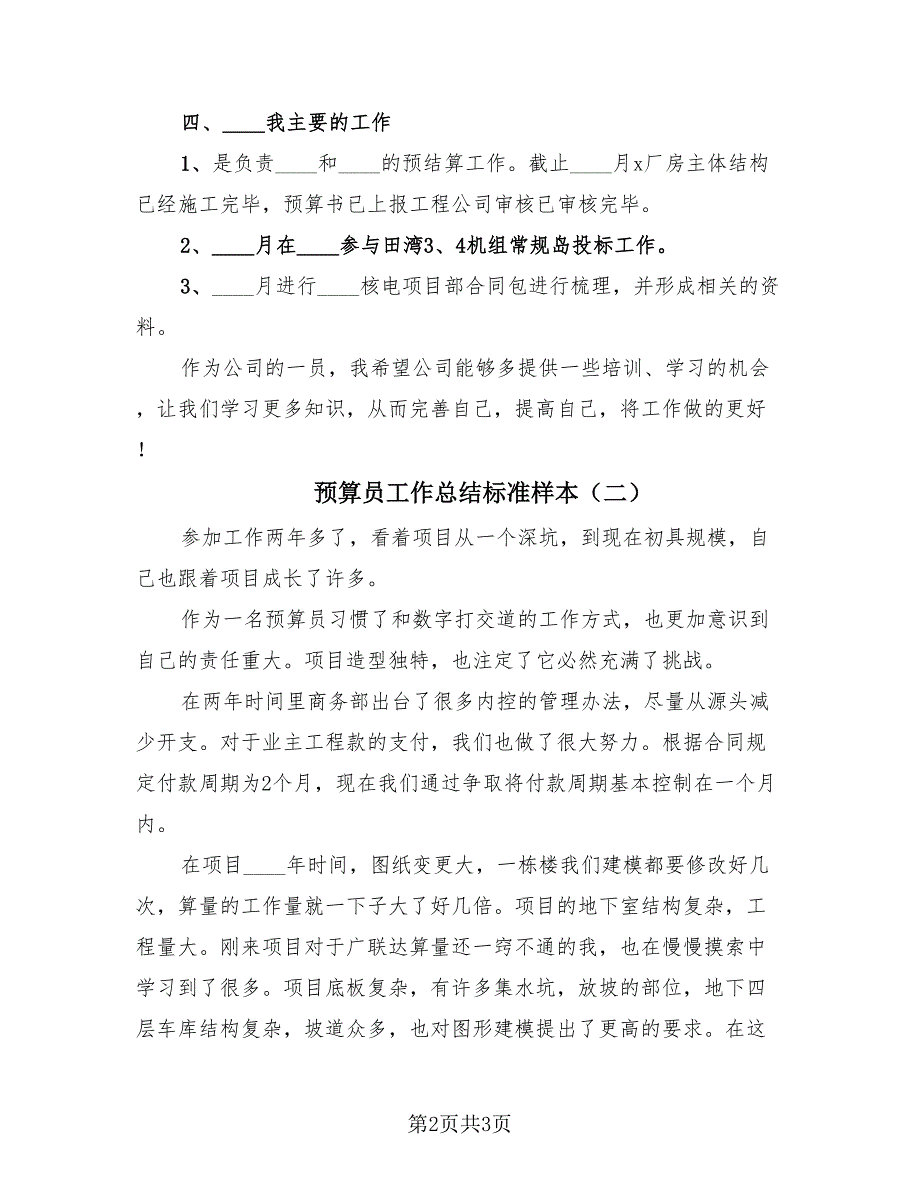 四、____我主要的工作
1、是负责____和____的预结算工作。截止____月x厂房主体结构
已经施工完毕，预算书已上报工程公司审核已审核完毕。
2、____月在____参与田湾3、4机组常规岛投标工作。
3、____月进行____核电项目部合同包进行梳理，并形成相关的资
料。
作为公司的一员，我希望公司能够多提供一些培训、学习的机会
，让我们学习更多知识，从而完善自己，提高自己，将工作做的更好
！
预算员工作总结标准样本（二）
参加工作两年多了，看着项目从一个深坑，到现在初具规模，自
己也跟着项目成长了许多。
作为一名预算员习惯了和数字打交道的工作方式，也更加意识到
自己的责任重大。项目造型独特，也注定了它必然充满了挑战。
在两年时间里商务部出台了很多内控的管理办法，尽量从源头减
少开支。对于业主工程款的支付，我们也做了很大努力。根据合同规
定付款周期为2个月，现在我们通过争取将付款周期基本控制在一个月
内。
在项目____年时间，图纸变更大，一栋楼我们建模都要修改好几
次，算量的工作量就一下子大了好几倍。项目的地下室结构复杂，工
程量大。刚来项目对于广联达算量还一窍不通的我，也在慢慢摸索中
学习到了很多。项目底板复杂，有许多集水坑，放坡的部位，地下四
层车库结构复杂，坡道众多，也对图形建模提出了更高的要求。在这
第2页共3页